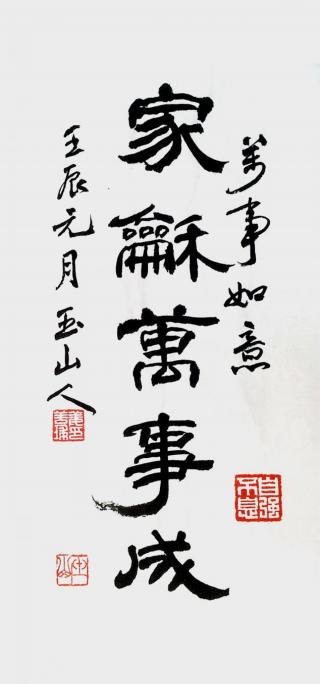 萬事如意
家龢萬事成
壬辰元月 玉山人
自强不息